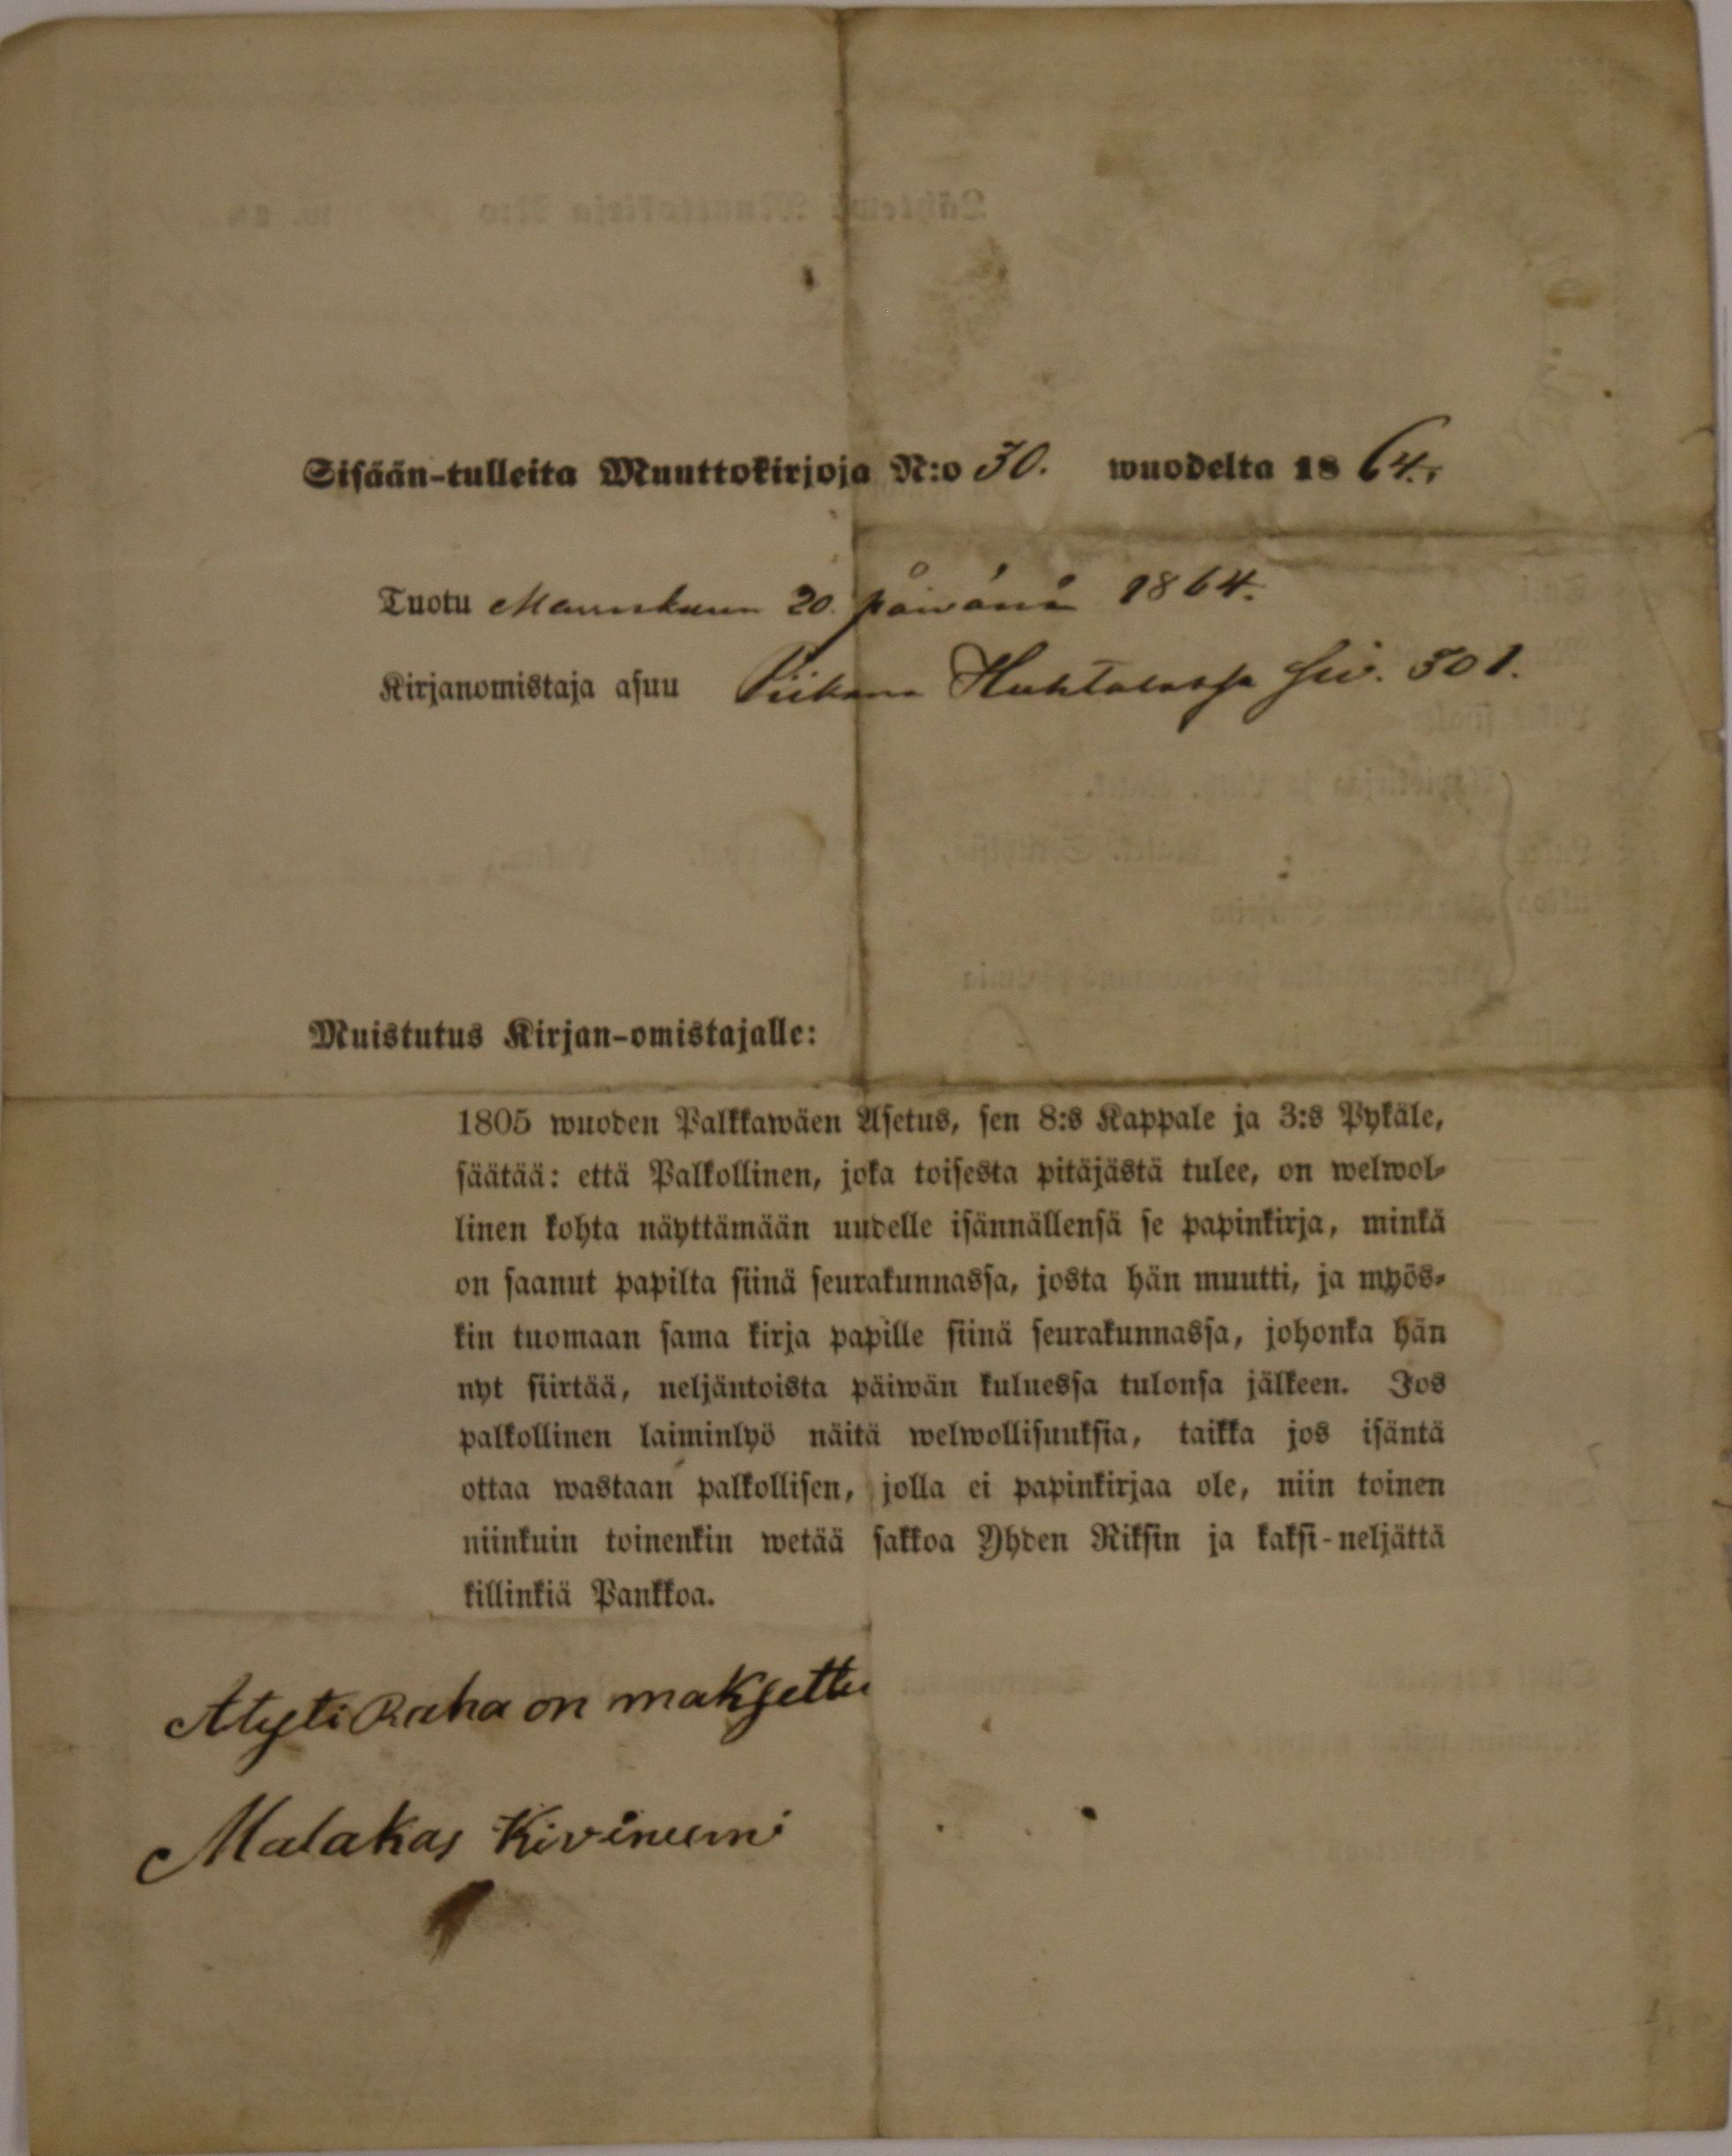 Sisään-tulleita Muuttokirjoja N:o 30. wuodelta 1864.
Tuotu Marraskuun 20 päiwänä 1864.
Kirjanomistaja asuu Piikana Huhtalassa siw. 501.
Muistutus Kirjan-omistajalle:
1805 wuoden Palkkawäen Asetus, sen 8:s Kappale ja 3:s Pykäle,
säätää: että Palkollinen, joka toisesta pitäjästä tulee, on welwol-
linen kohta näyttämään uudelle isännällensä se papinkirja, minkä
on saanut papilta siinä seurakunnassa, josta hän muutti, ja myös-
kin tuomaan sama kirja papille siinä seurakunnassa, johonka hän
nyt siirtää, neljäntoista päiwän kuluessa tulonsa jälkeen. Jos
palkollinen laiminlyö näitä welwollisuuksia, taikka jos isäntä
ottaa wastaan palkollisen, jolla ei papinkirjaa ole, niin toinen
niinkuin toinenkin wetää sakkoa Yhden Riksin ja kaksi-neljättä
killinkiä Pankkoa.
Raha on maksettu
Malakas Kiviniemi